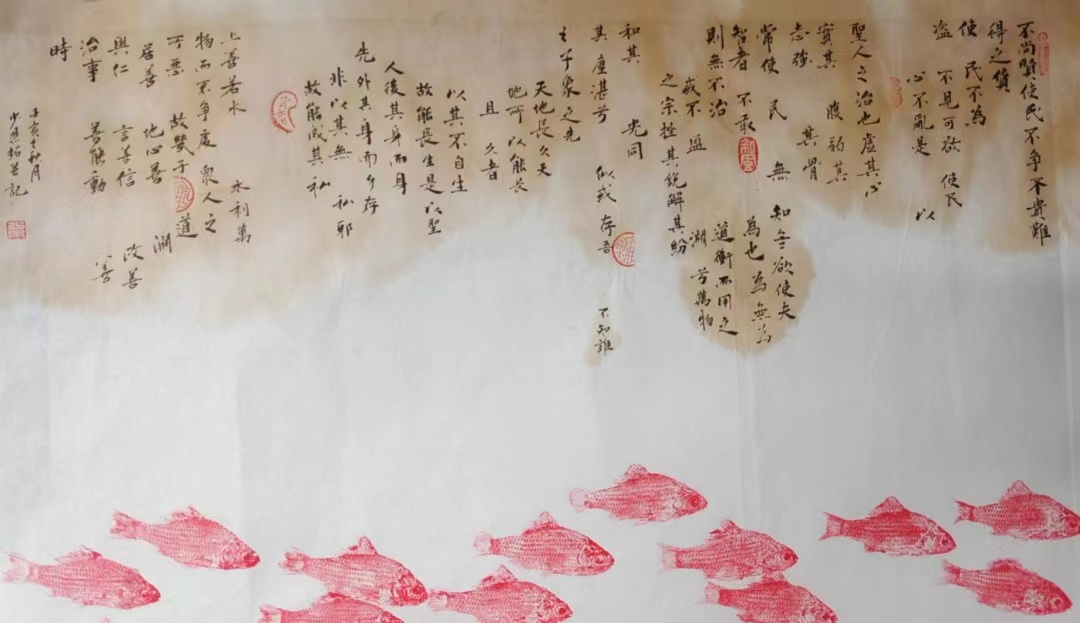 不尚賢使民不争不貴難
得之貨
使民不為
盗 不見可欲 使民
心不亂是 以
聖人之治也虚其心
實其 腹弱其
志強 其骨
常使 民 無 知無欲使夫
智者 不敢 為也 為無為
則無不治 道衝而用之
或不 盈 淵 兮萬物
之宗挫其鋭解其紛
和其 光同
其塵湛兮 似或存吾 不知誰
之子象之先
天地長久天
地所以能長
且久者
以其不自生
故能長生是以聖
人後其身而身
先外其身而身存
非以其無私耶
故能成其私
上善若水 水利萬
物而不争處衆人之
所惡 故幾于道
居善 地心善 淵
與仁 言善信 政善
治事 善能動 善
時
壬寅之秋月